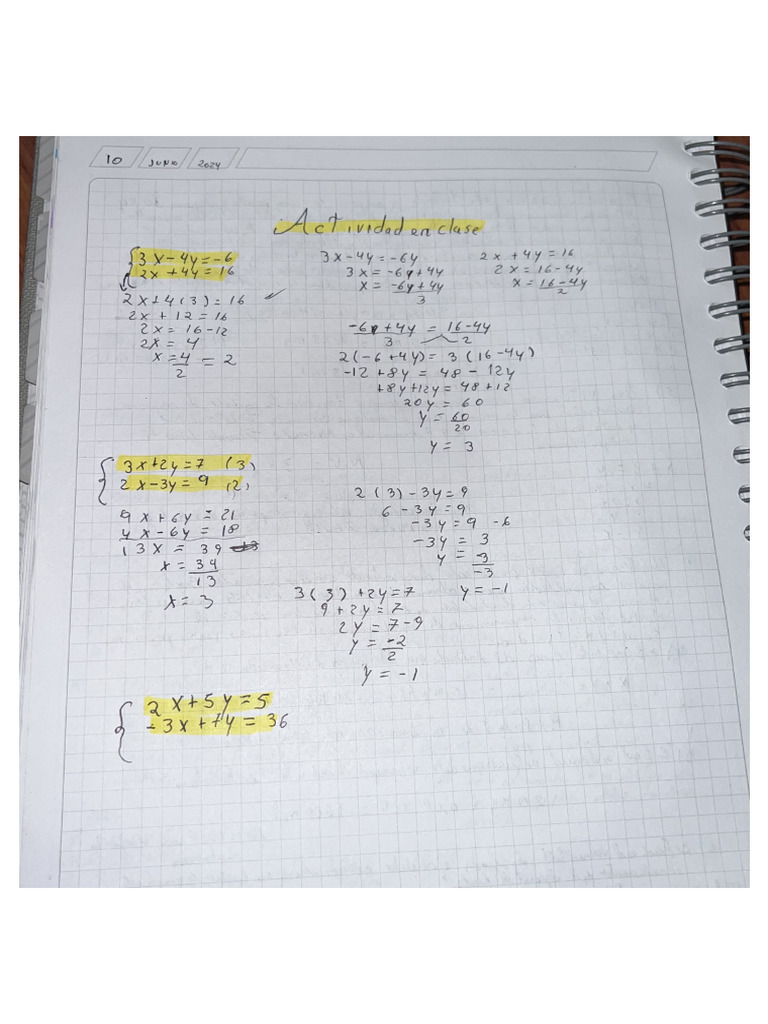 10 JUNIO 2024
Actividad en clase
3x-4y=-6
2x+4y=16
2x+4(3)=16 ✓
2x+12=16
2x=16-12
2x=4
x=4/2=2
3x-4y=-6y
3x=-6y+4y
x=-6y+4y/3
2x+4y=16
2x=16-4y
x=16-4y/2
-6+4y/3=16-4y/2
2(-6+4y)=3(16-4y)
-12+8y=48-12y
+8y+12y=48+12
20y=60
y=60/20
y=3
3x+2y=7 (3)
2x-3y=9 (2)
9x+6y=21
4x-6y=18
13x=39
x=34/13
x=3
2(3)-3y=9
6-3y=9
-3y=9-6
-3y=3
y=3/-3
y=-1
3(3)+2y=7
9+2y=7
2y=7-9
y=-2/2
y=-1
2x+5y=5